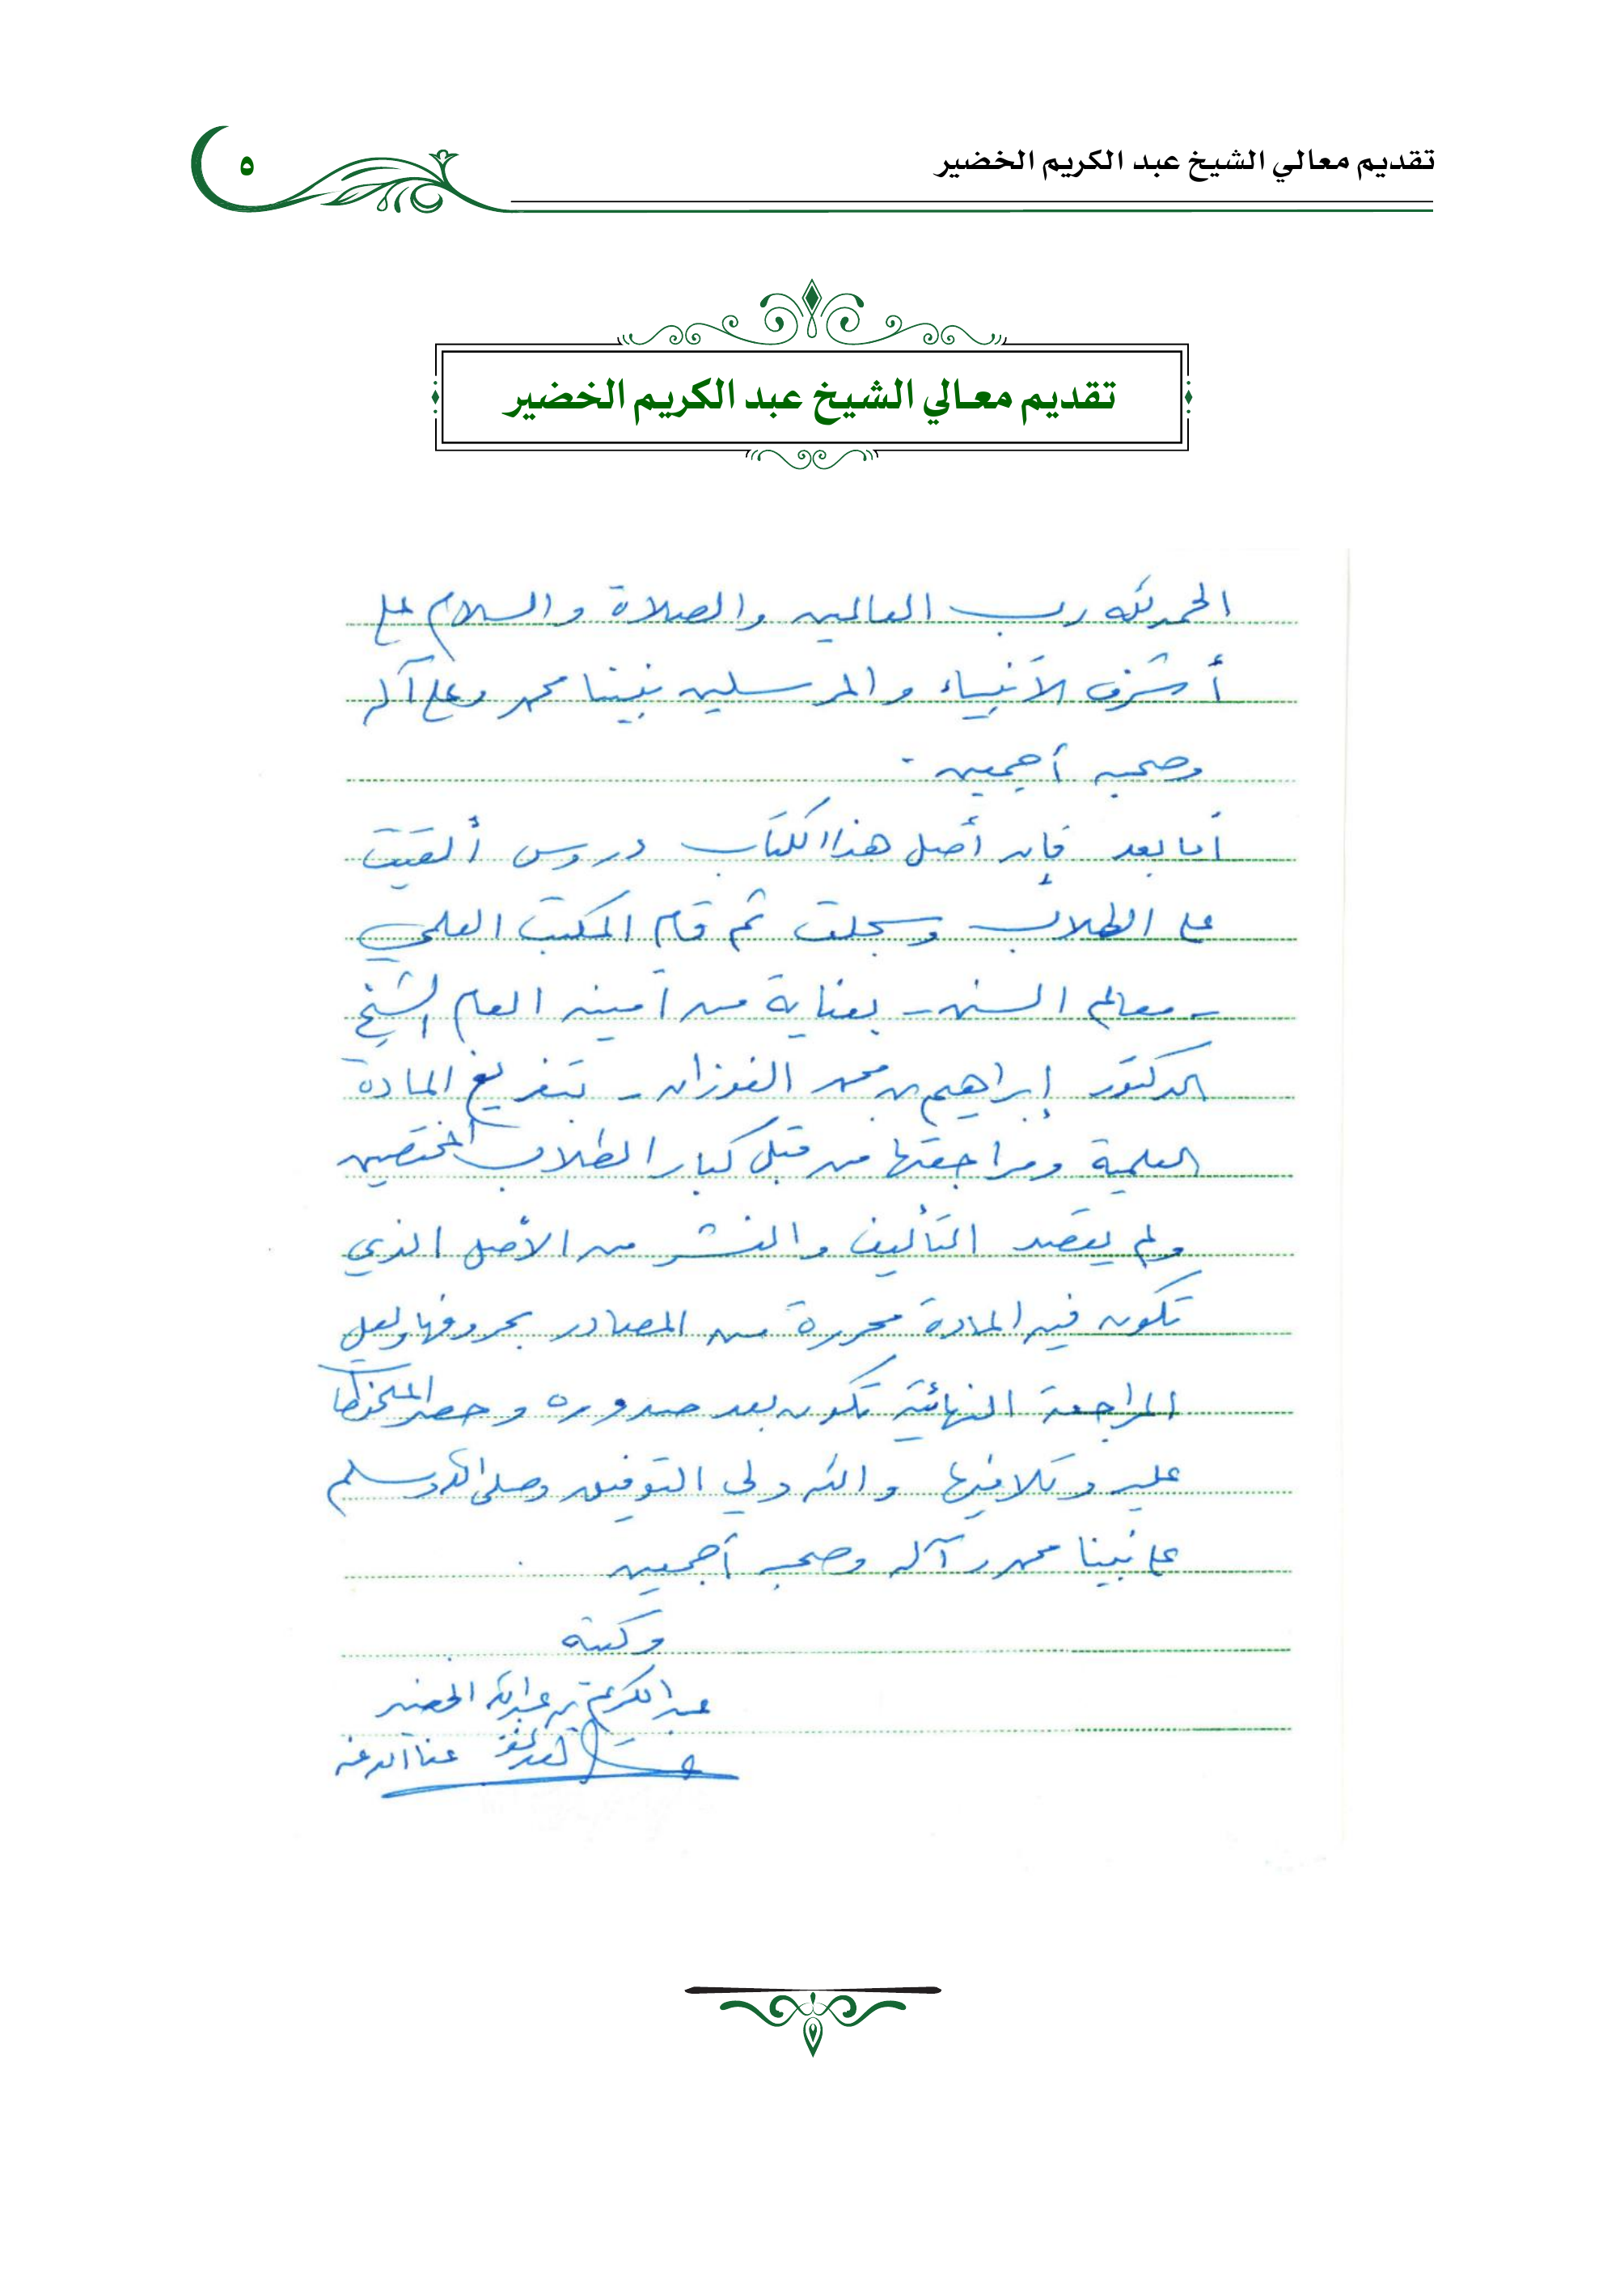 تقديم معالي الشيخ عبد الكريم الخضير
٥
تقديم معالي الشيخ عبد الكريم الخضير
الحمد لله رب العالمين والصلاة والسلام على
أشرف الأنبياء والمرسلين نبينا محمد وعلى آله
وصحبه أجمعين .
أما بعد فإن أصل هذا الكتاب دروس ألقيت
على الطلاب وسجلت ثم قام المكتب العلمي
- معالم السنن - بعناية من أمينه العام الشيخ
الدكتور إبراهيم بن محمد الفوزان - بتفريغ المادة
العلمية ومراجعتها من قبل كبار الطلاب المختصين
ولم يقصد التأليف والنشر من الأصل الذي
تكون فيه المادة محررة من المصادر بحروفها ولعل
المراجعة النهائية تكون بعد صدوره وحصر
عليه وتلافيها والله ولي التوفيق وصلى الله وسلم
على نبينا محمد وآله وصحبه أجمعين .
وكتبه
عبد الكريم بن عبد الله الخضير
عفا الله عنه